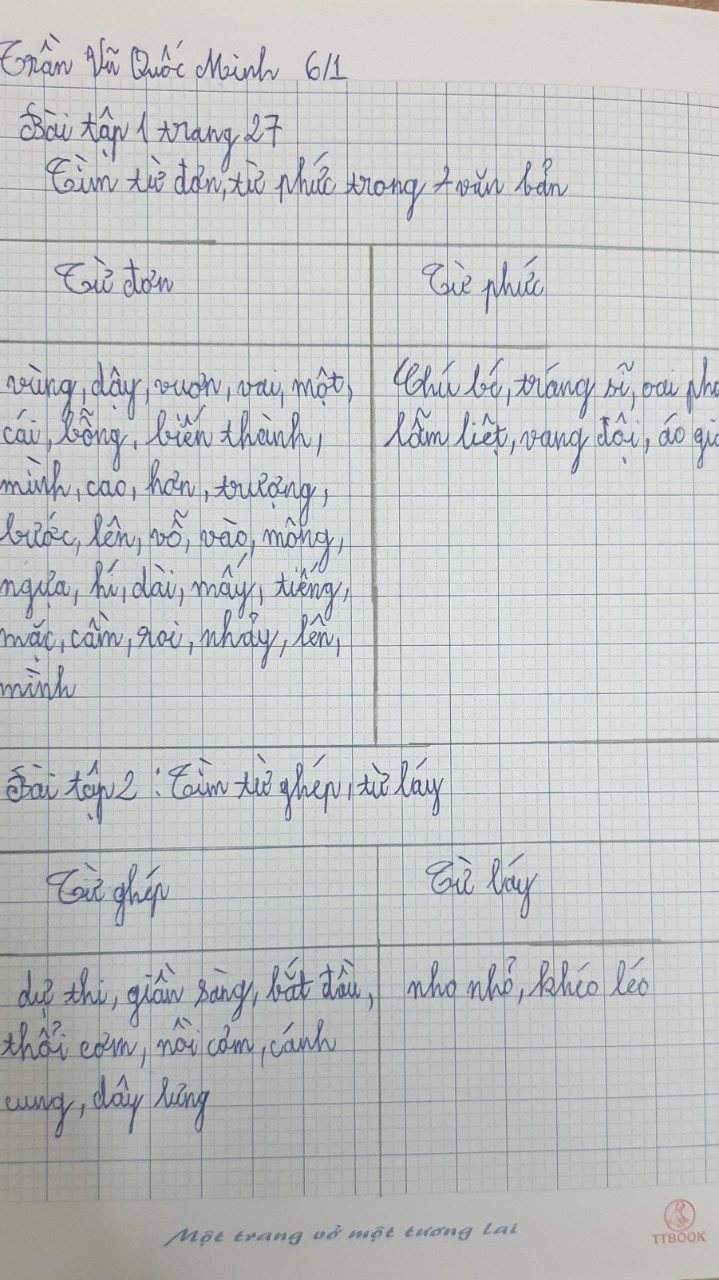 Trần Vũ Quốc Minh 6/1
Bài tập 1 trang 27
Tìm từ đơn, từ phức trong 2 văn bản
Từ đơn Từ phức
vùng, dậy, vươn, vai, một,
cái, bỗng, biến thành,
mình, cao, hơn, trượng,
bước, lên, vỗ, vào, mông,
ngựa, hí, dài, mấy, tiếng,
mặc, cầm, roi, nhảy, lên,
mình
Chú bé, tráng sĩ, oai pho
lẫm liệt, vang đội, áo gi
Bài tập 2 : Tìm từ ghép, từ láy
Từ ghép Từ láy
dự thi, giần sàng, bắt đầu,
thổi cơm, nồi cơm, cánh
cung, dây lưng
nho nhỏ, khéo léo
Một trang vở một tương lai
TTBOOK